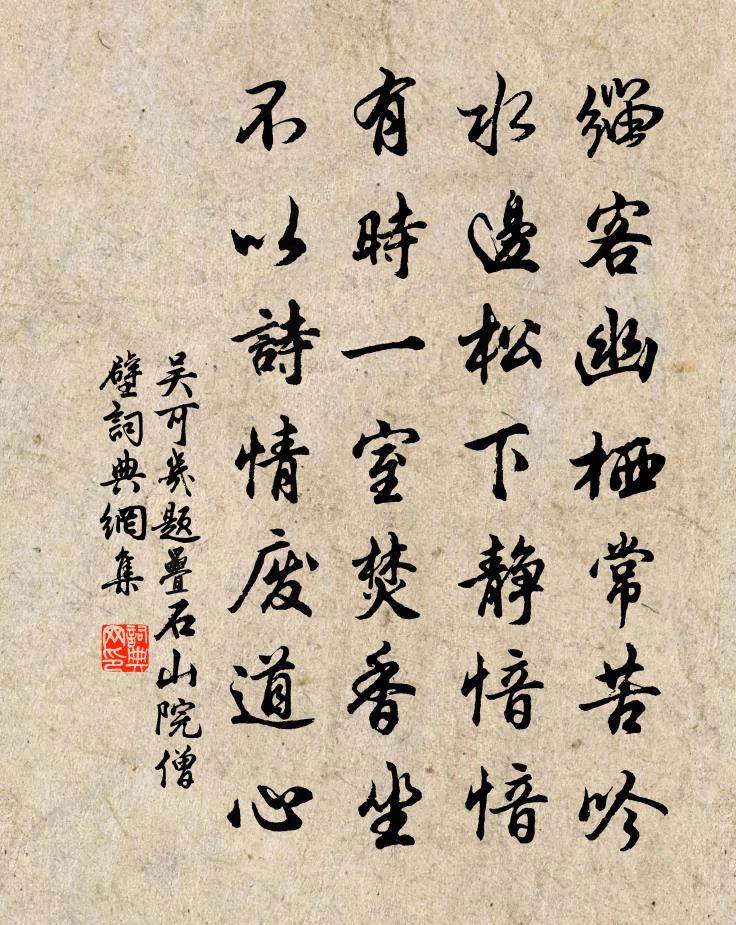 緇客幽栖常苦吟
水邊松下静愔愔
有時一室焚香坐
不以詩情废道心
吴可幾題疊石山院僧
壁詞典網集
詞典网印